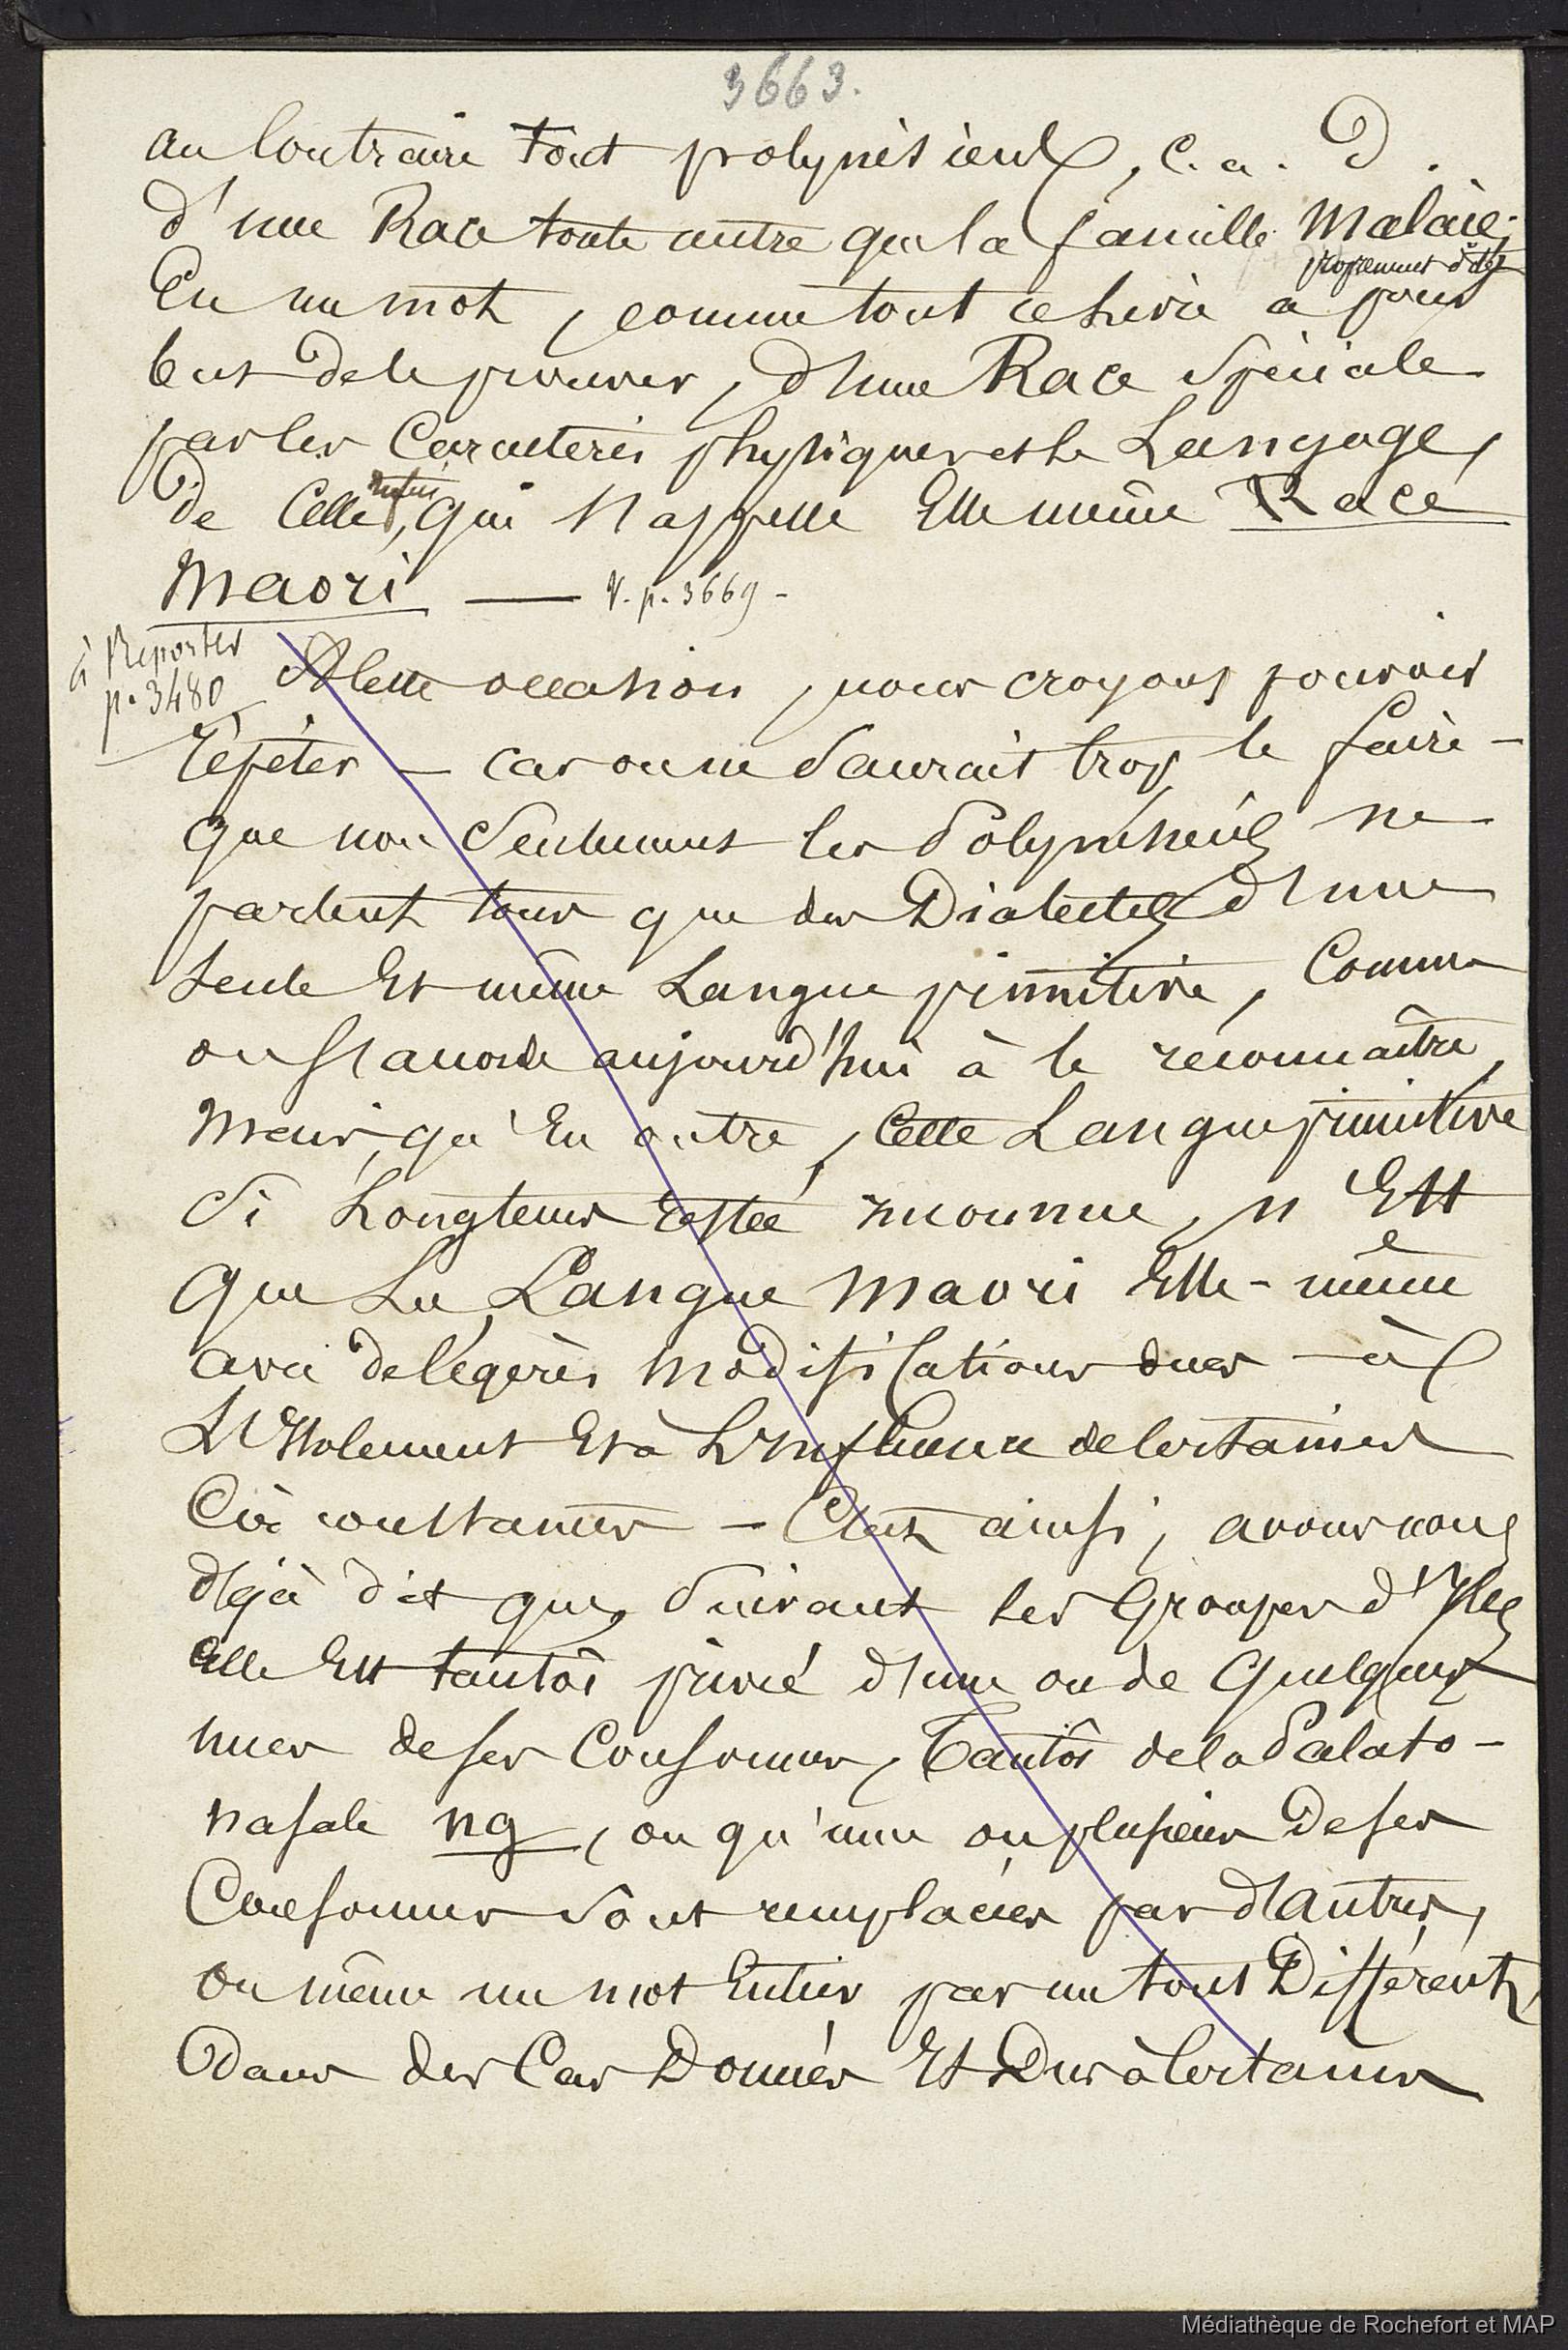 3663.
au Contraire tout polynésiens, c. a. d.
d'une Race toute autre que la famille Malaie,
proprement dite
En un mot, comme tout ce livre a pour
but de le prouver, d'une Race Spéciale
par les Caractères physiques et le Langage,
de Celle enfin, qui s'appelle Elle même Race
Maori — V. p. 3669 -
à Reporter
p. 3480
A Cette occasion, nous croyons pouvoir
répéter — car on ne Saurait trop le faire —
que non Seulement les Polynésiens ne
parlent tous que des Dialectes d'une
Seule Et même Langue primitive, Comme
on s'accorde aujourd'hui à le reconnaître,
Mais, qu'En outre, Cette Langue primitive
Si Longtems restée inconnue, n'Est
que La Langue Maori Elle-même
avec de légères modifications dues à
L'Isolement Et à L'Influence de Certaines
Circonstances — C'est ainsi, avons nous
déjà dit que, Suivant les Groupes d'Iles
elle Est tantôt privé d'une ou de quelques
unes de ses Consonnes, Tantôt de la Palato-
nasale ng, ou qu'une ou plusieurs de ses
Consonnes Sont remplacées par d'autres,
ou même un mot Entier par un tout Différent,
Dans des Cas Donnés Et Dus à Certaines
Médiathèque de Rochefort et MAP